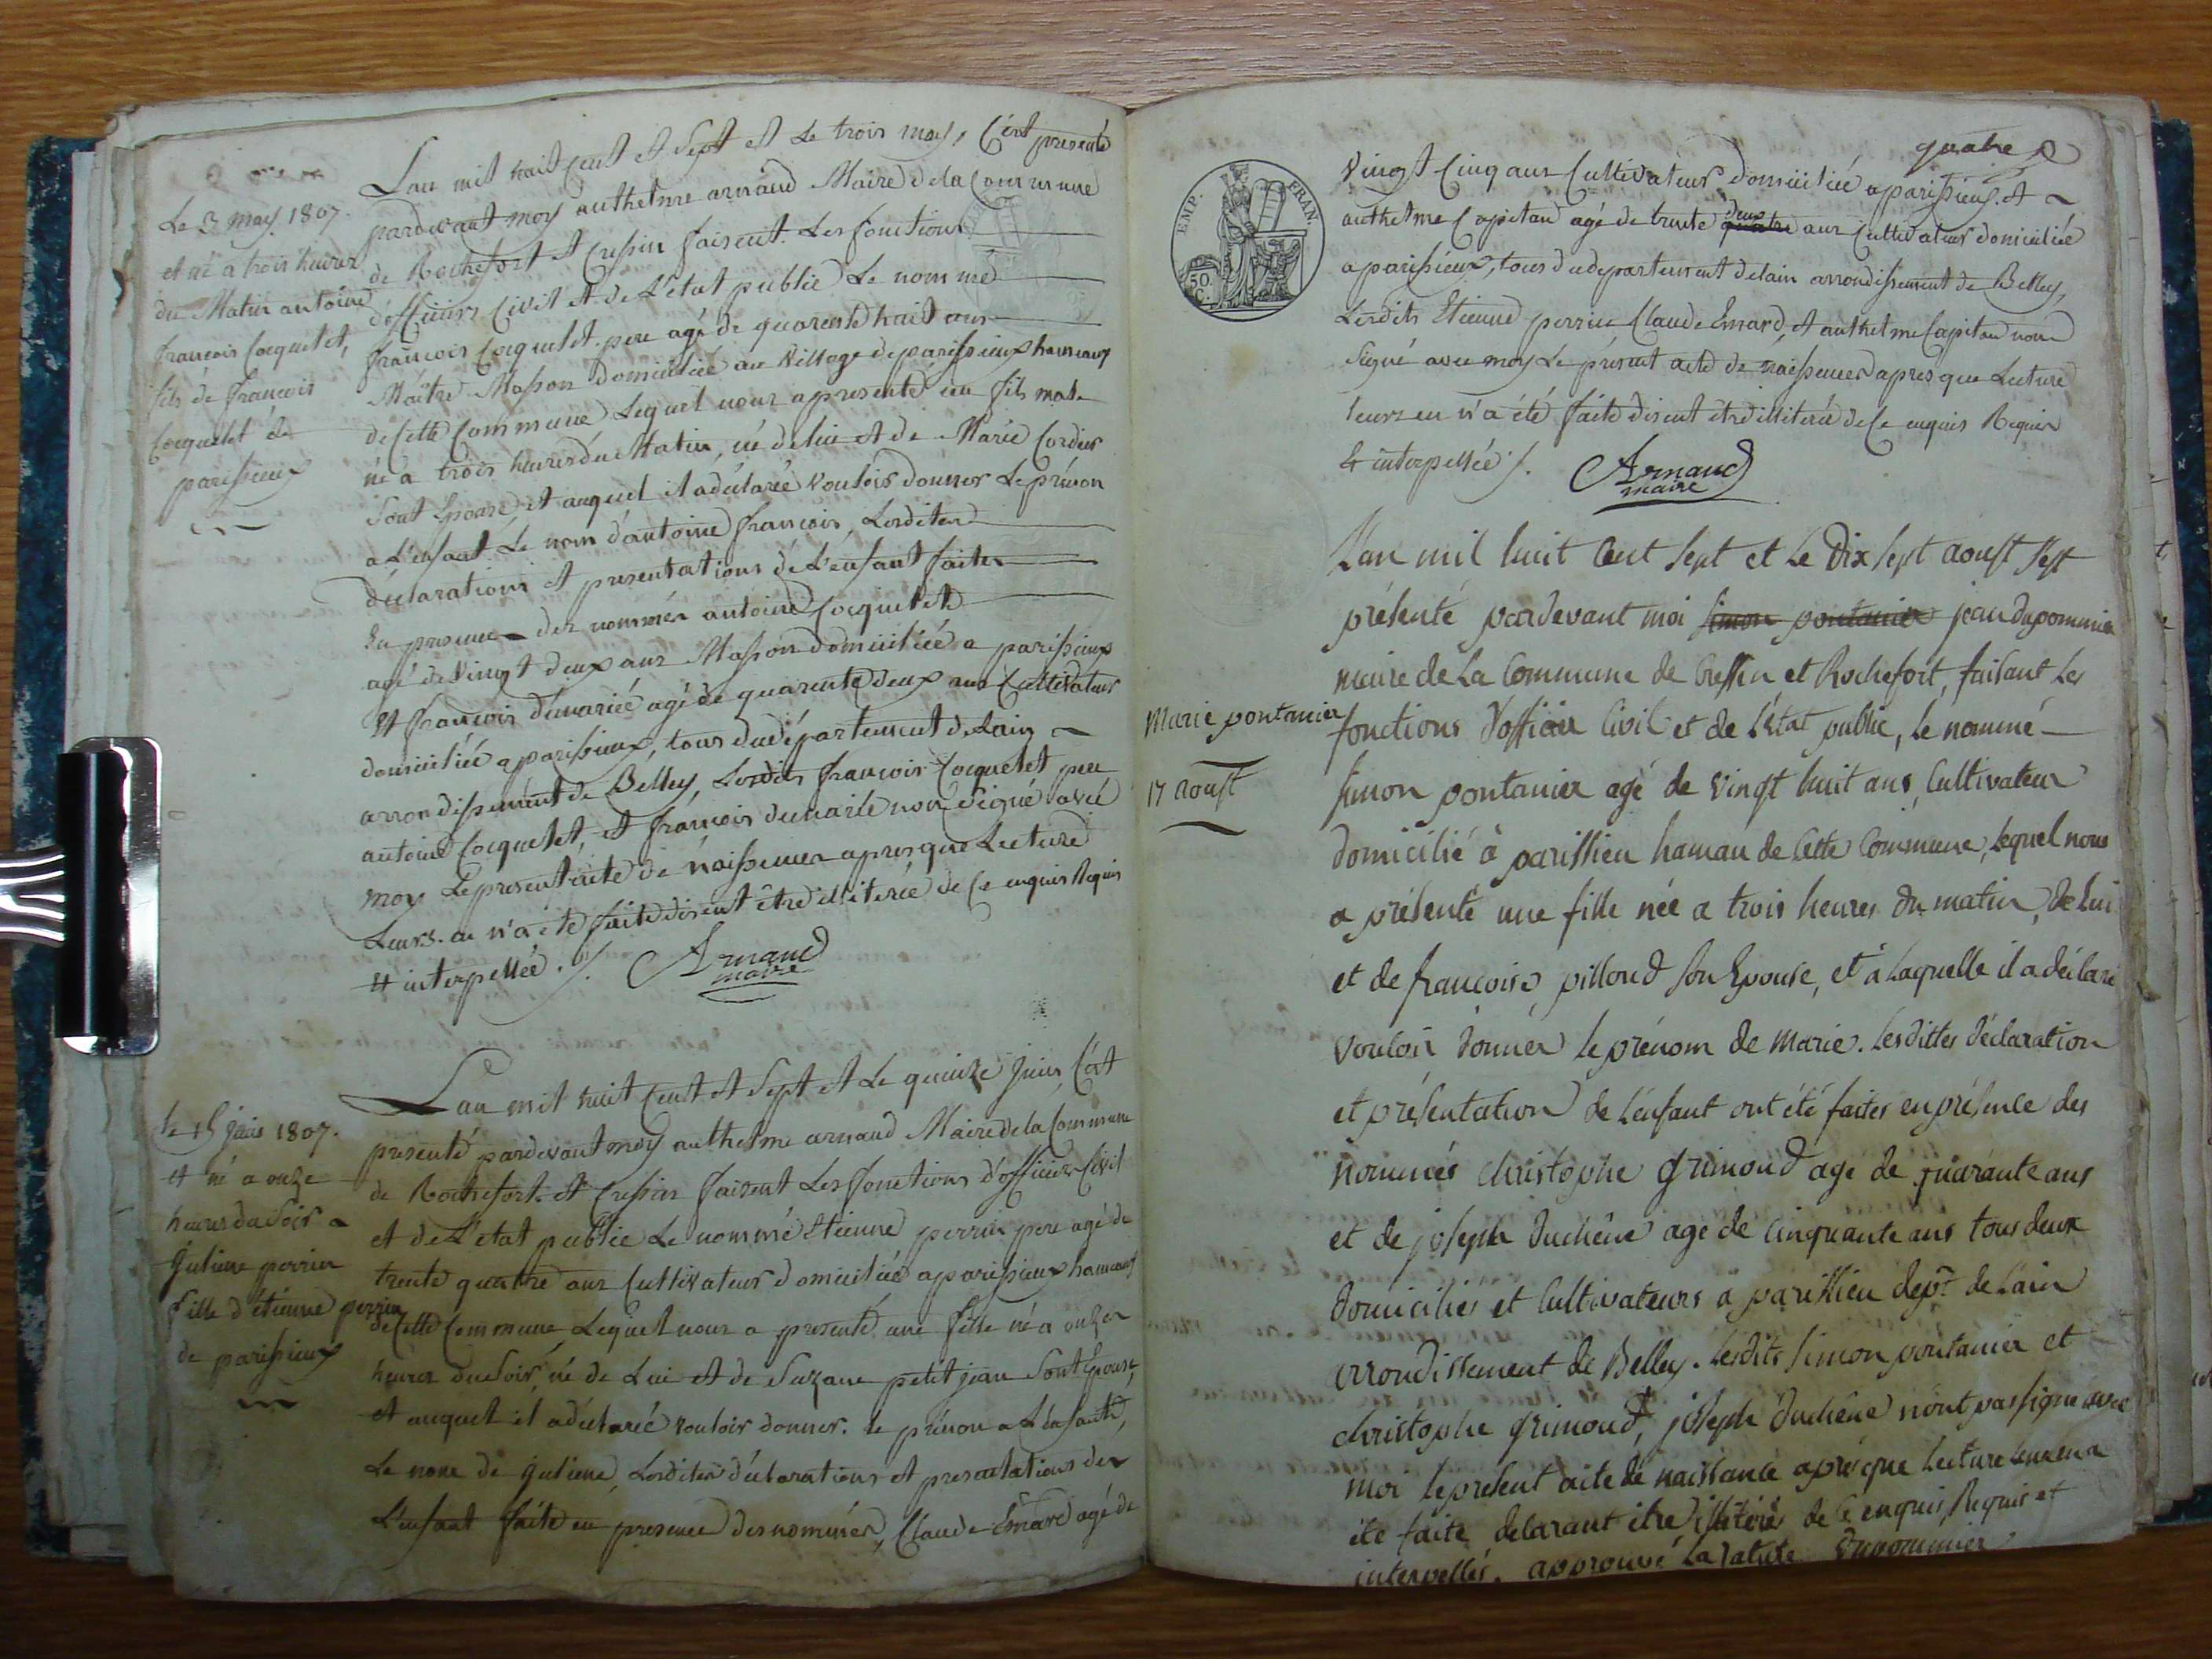 Le 3 may 1807.
et né a trois heures
du Matin antoine
francois Cocquelet,
fils de francois
Cocquelet de
parissieux
Lan mil huit Cent et Sept et Le trois may, C'est presenté
pardevant moy anthelme arnaud Maire de la Commune
de Rochefort et Cressin faisent Les fonctions
d'officiers Civil et de L'état publie Le nommé
francois Cocquelet pere agé de quarente huit ans
Maître Masson domicilié au Village de parissieux hameaux
de Cette Commune Lequel nous a presenté un fils male
né a trois heures du Matin, né de lui et de Marie Cordier
Sont Epouse et auquel il a déclaré vouloir donner Le prénon
a L'enfant Le nom d'antoine francois, Lesdites
déclarations et presentations de L'enfant faites
En presence des nommés antoine Cocquelet
agé de vingt deux ans Masson domiciliée a parissieux
Et francois dumarié agé de quarente deux ans Cultivateur
domiciliée a parissieux, tous du département de Lain
arrondissement de Belley, Lesdits francois Cocquelet pere
antoine Cocquelet, et francois dumarié non Signé avec
moy Le present acte de naissences apres que Lecture
Leurs en n'a été faite disent être illiterée de Ce enquis Requis
et interpellée ./.
Arnaud
maire
le 15 juin 1807.
et né a onze
heures du Soir a
Juliene perrin
fille d'étienne perrin
de parissieux
Lan mil huit Cent et Sept et Le quinze Juin C'est
presenté pardevant moy anthelme arnaud Maire de la Commune
de Rochefort et Cressin faisent Les fonctions d'officier Civil
et de L'état publie Le nommé Etienne perrin pere agé de
trente quatre ans Cultivateur domiciliée a parissieux hameaux
de Cette Commune Lequel nous a presenté une fille né a onzes
heures du Soir, né de Lui et de Suzane petit jean Sont Epouse,
et auquel il a déclaré vouloir donner. le prénon a L'enfant,
Le nom de Juliene, Lesdites déclarations et presentations de
L'enfant faite en presence des nommés, Claude Emard agé de
quatre
Vingt Cinq ans Cultivateur domiciliée a parissieux. Et
anthelme Capitan agé de trente deux quatre ans Cultivateur domiciliée
a parissieux, tous du departement delain arrondissement de Belley,
Lesdits Etienne perrin Claude Emard, et anthelme Capitan non
Signé avec moy Le présent acte de naissences apres que Lecture
Leurs en n'a été faite disent être illiterée de Ce enquis Requis
Et interpellée ./.
Arnaud
maire
EMP. FRAN.
50 C.
Marie pontanier
17 aoust
L'an mil huit Cent Sept et Le Dix sept aoust s'est
présenté pardevant moi Simon pontanier jean dupommier
maire de La Commune de Cressin et Rochefort, faisant Les
fonctions d'officier Civil et de L'état public, Le nommé
Simon pontanier agé de vingt huit ans, Cultivateur
domicilié à parissieu hamau de Cette Commune, Lequel nous
a présenté une fille née a trois heures du matin, de Lui
et de francoise pilloud Son Epouse, et à Laquelle il a déclaré
vouloir donner le prénom de Marie. Lesdittes déclaration
et présentation de L'enfant ont été faites en présence des
nommés christophe grimoud agé de quarante ans
et de joseph duchêne agé de cinquante ans tous deux
domiciliés et Cultivateurs à parissieu dept. de Lain
arrondissement de Belley. Lesdits Simon pontanier et
christophe grimoud, joseph duchêne n'ont pas signé avec
moi le présent acte de naissance après que Lecture Leur en a
été faite, delarant être illitérés de Ce enquis, Requis et
interpellés. approuvé La rature. Dupommier